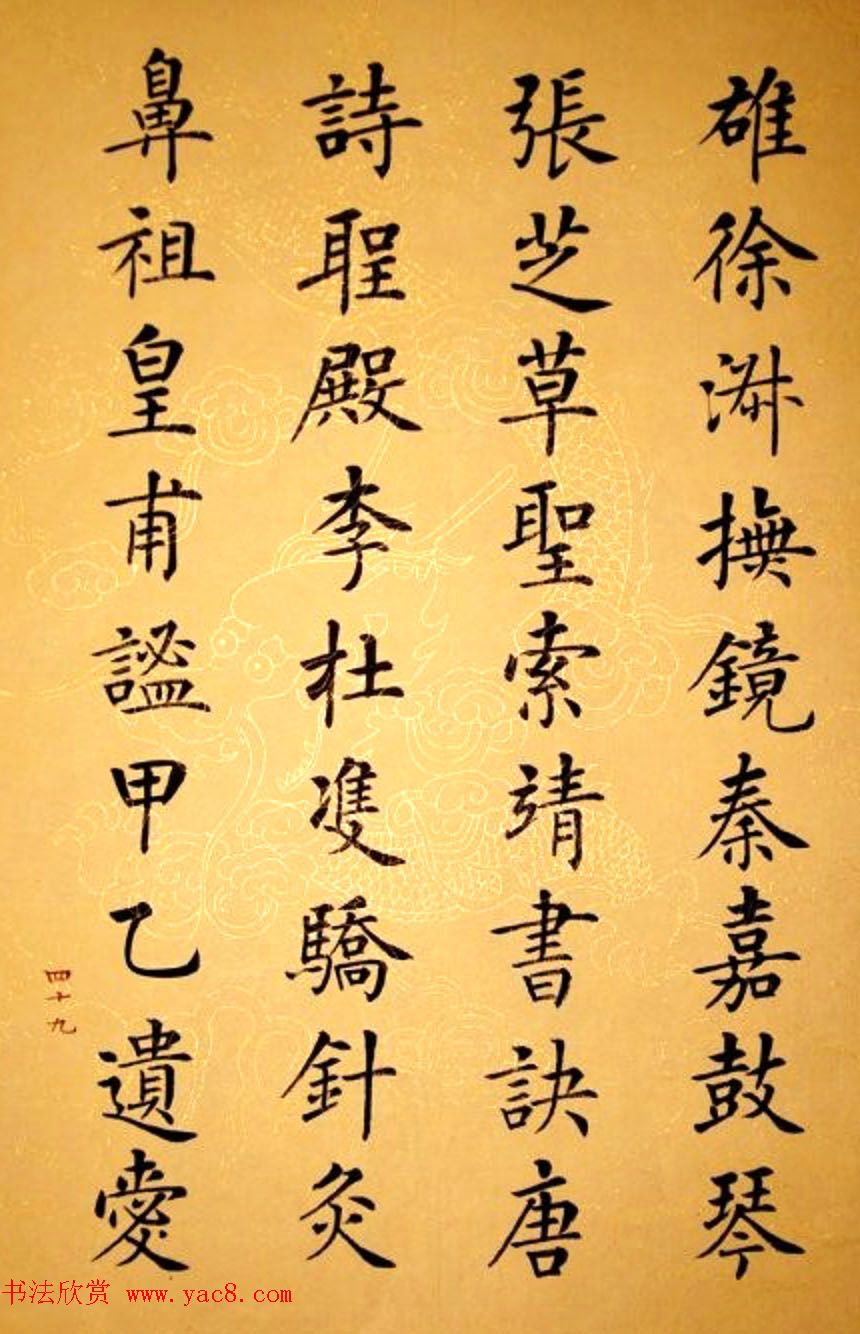 雄徐淑撫鏡秦嘉鼓琴
張芝草聖索靖書訣唐
詩聖殿李杜雙驕針灸
鼻祖皇甫謐甲乙遺愛
四十九
书法欣赏 www.yac8.com